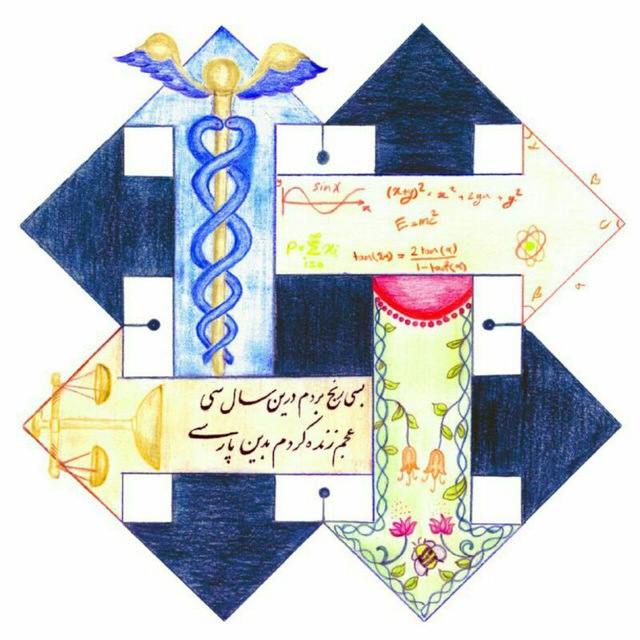 sin x
y
x
(x+y)² = x² + 2yx + y²
E=mc²
P = ∑ xi
i=0
tan(2x) = 2 tan(x) / 1 - tan²(x)
α
B
C
β
a
بسی رنج بردم درین سال سی
عجم زنده کردم بدین پارسی